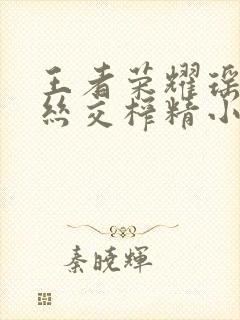 王者荣耀瑶
丝交榨精小
秦晓辉